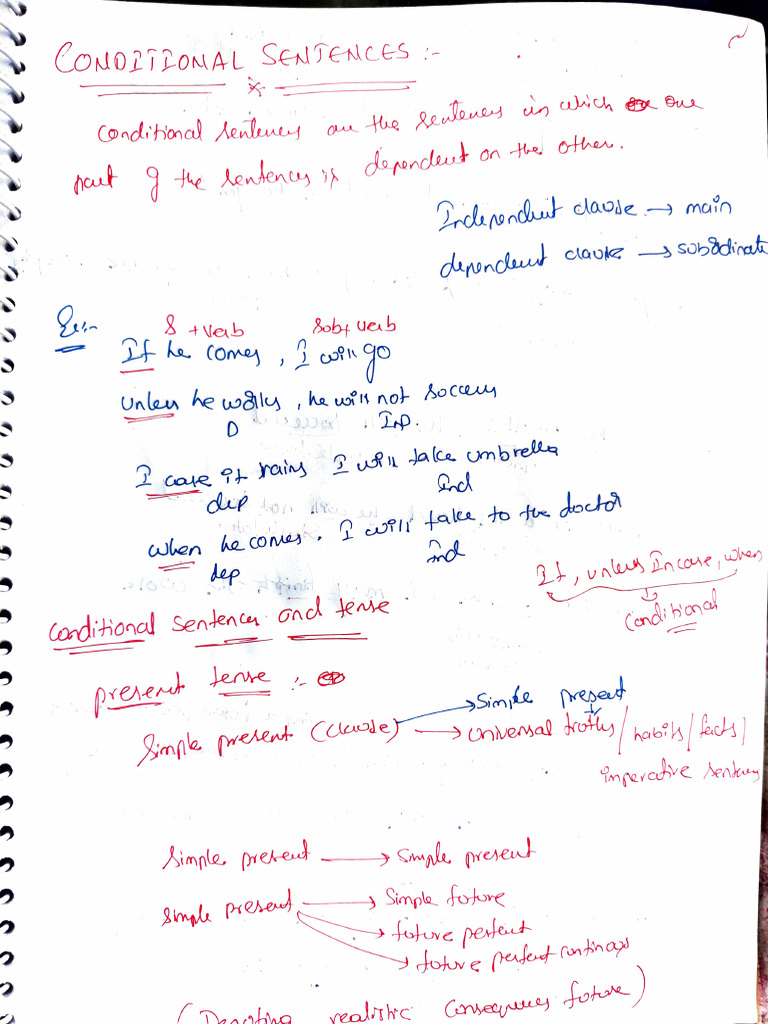 CONDITIONAL SENTENCES :-
Conditional sentences are the sentences in which one
part of the sentences is dependent on the other.
Independent clause → main
dependent clause → subordinate
Ex:-
S + verb Sub+ verb
If he comes, I will go
Unless he works, he will not success
D InD.
I case it rains I will take umbrella
dep Ind
when he comes. I will take to the doctor
dep Ind
If, unless Incase, when
conditional
Conditional sentences and tense
present tense :-
→ Simple present
Simple present (clause) → Universal truths / habits / facts /
imperative sentences
Simple present → simple present
Simple present → Simple future
→ future perfect
→ future perfect continuos
( Denoting realistic consequences future )